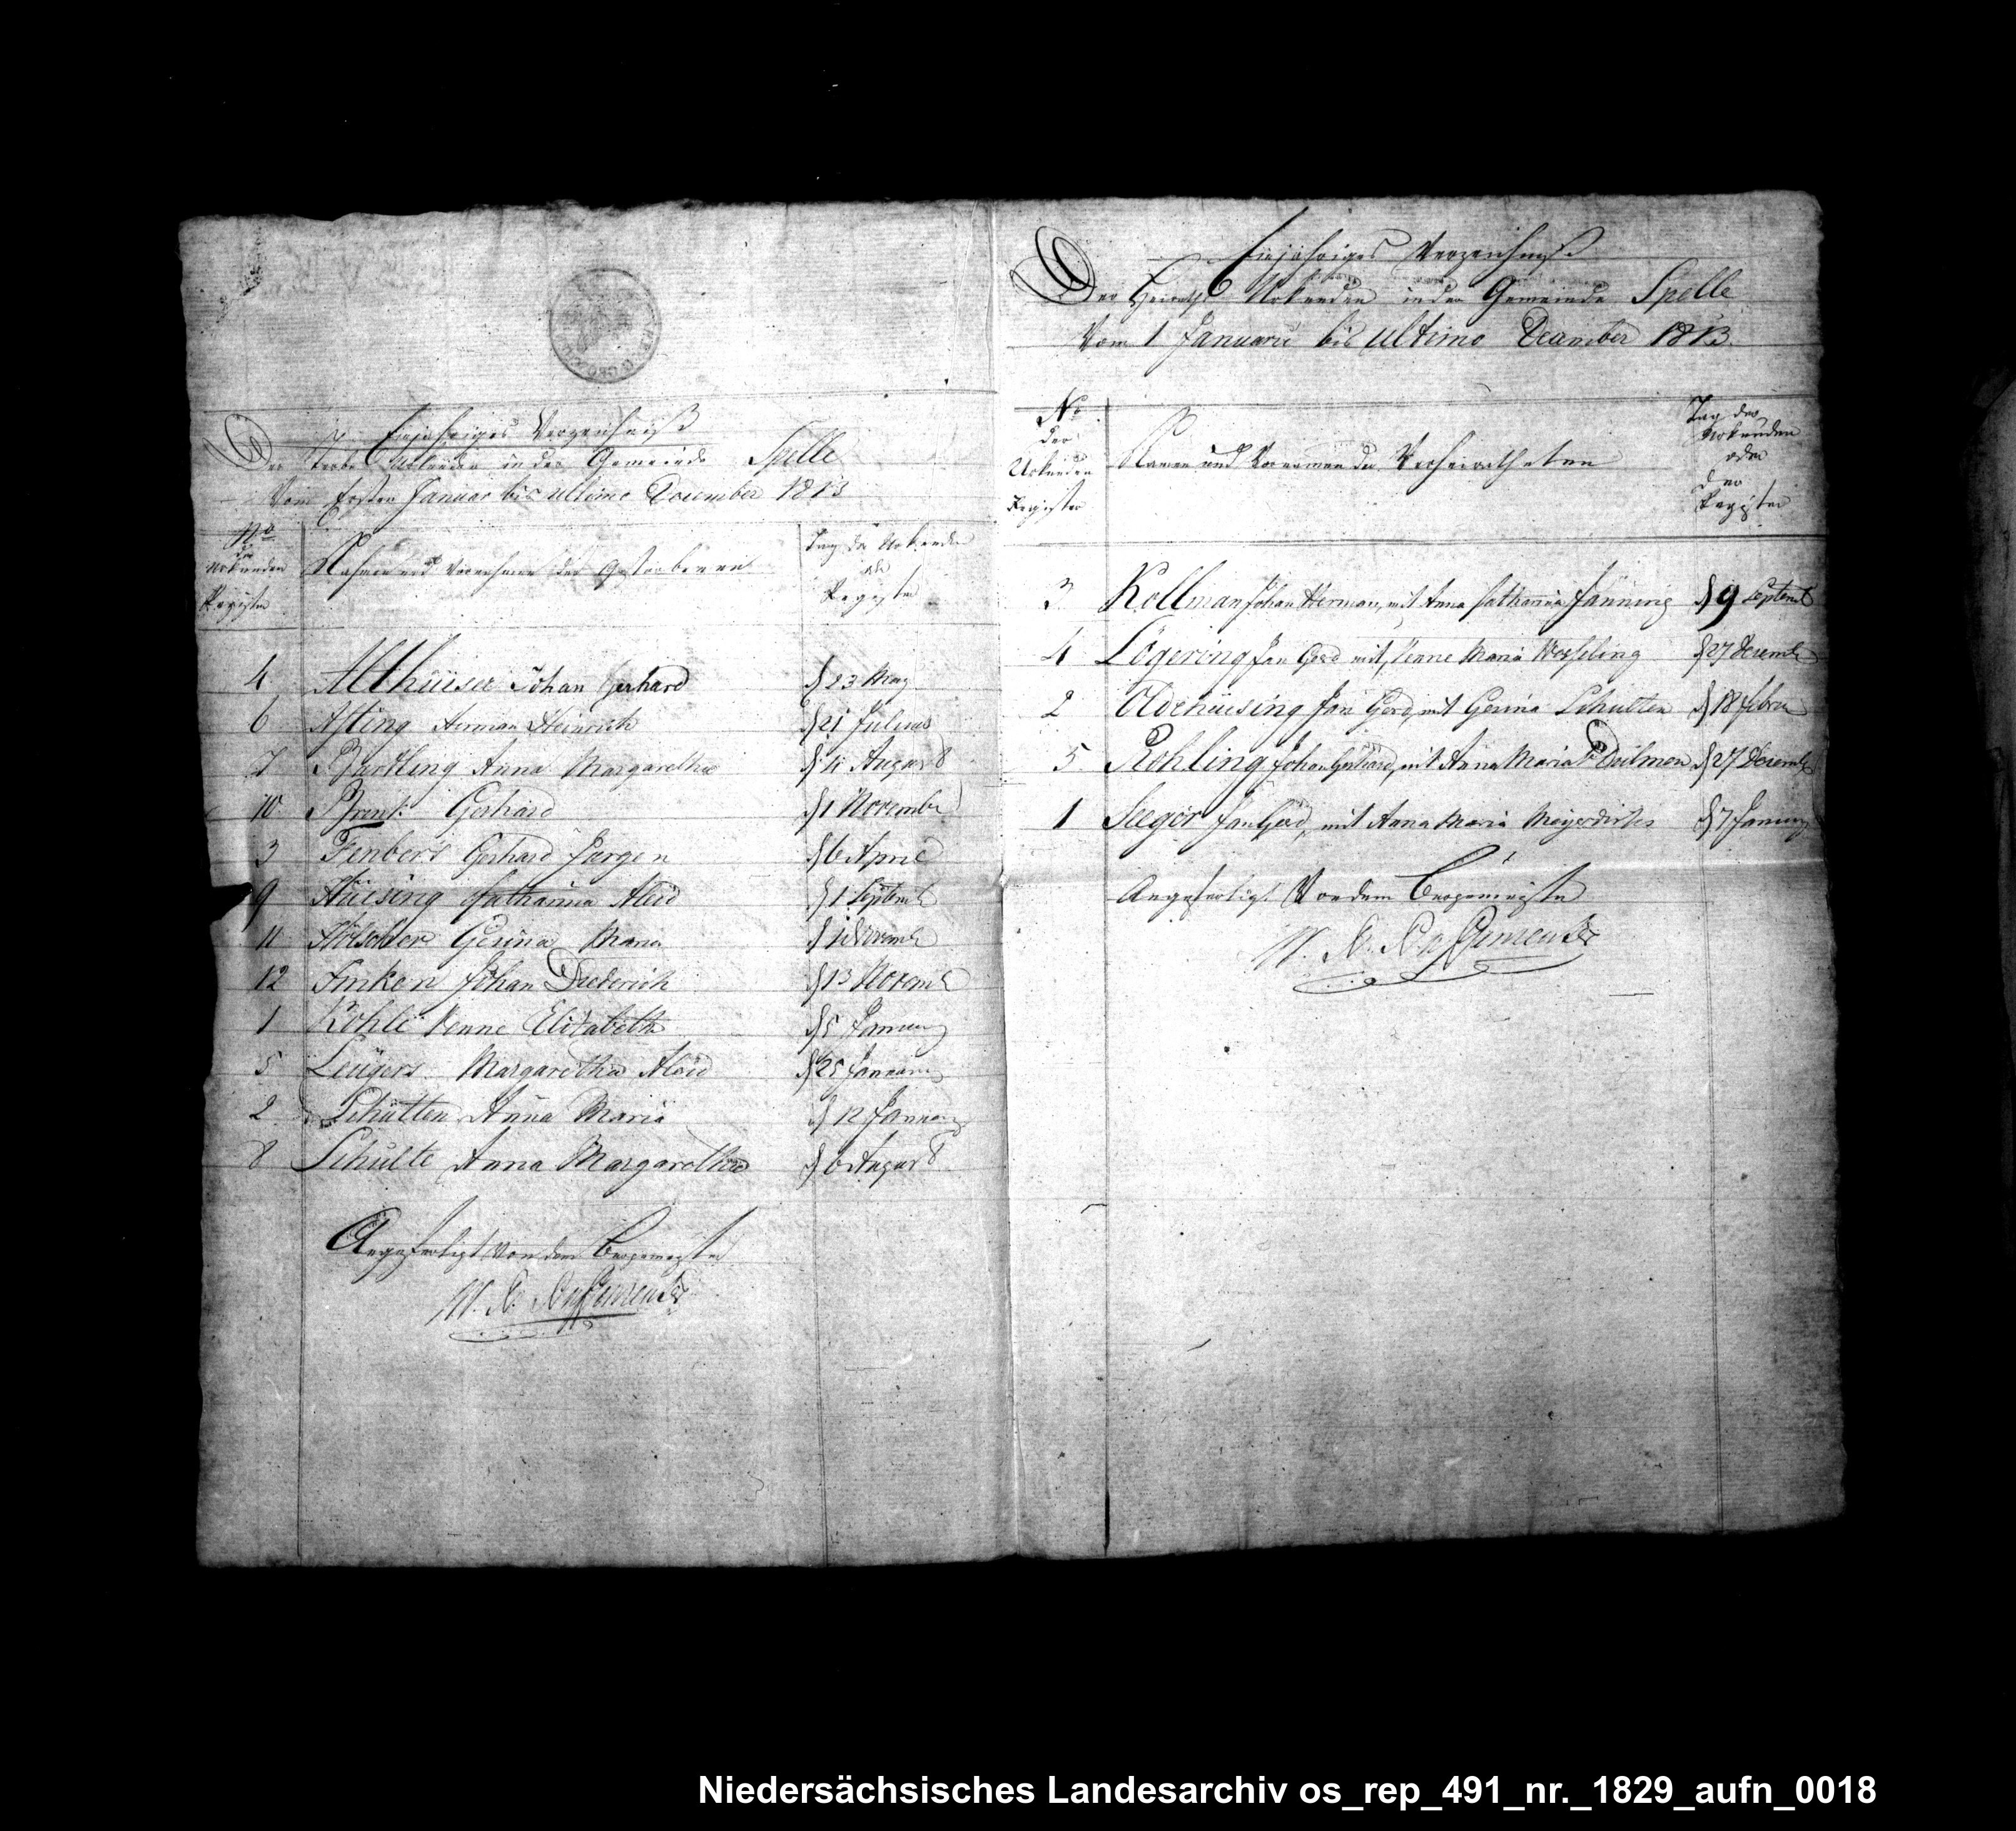 Einjähriges Verzeichniß
Der Sterbe Urkunden in der Gemeinde Spelle
Vom Ersten Januar bis ultimo December 1813
No
der
Urkunden
Register
Nahmen und Vornahmen der Gestorbenen
Tag der Urkunden
oder
Register
4 Althüser Johan Gerhard d 23 May
6 Asting Herman Heinrich d 21 Julius
7 Bartling Anna Margaretha d 4 August
10 Brenk Gerhard d 1 November
3 Fenbers Gerhard Jurgen d 6 April
9 Hüesing Catharina Aleid d 1 Septemb
11 Hölscher Gesina Maria Novemb
12 Johan Diederich d 13 Novemb
1 Kohle Venne Elisabeth d 5 January
5 Leügers Margaretha Aleid d 25 January
2 Schütten Anna Maria d 12 January
8 Schulte Anna Margaretha d 6 August
Angefertigt Von dem
Einjähriges Verzeichniß
Der Heiraths Urkunden in der Gemeinde Spelle
Vom 1 Januarii bis Ultimo December 1813
No
der
Urkunden
Register
Namen und Vornamen der Verheiratheten
Tag der
Urkunden
oder
der
Register
3 Kollman Johan Herman, mit Anna Catharina Janning d 9 Septemb
4 Lögering Jan Gerd mit, Venne Maria Wesseling d 27 Decemb
2 Oldehüesing Jan Gerd, mit Gesina Schulten d 18 Febru
5 Rohling Johan Gerhard, mit Anna Maria Deilmen d 27 Decemb
1 Seeger Jan Gerd, mit Anna Maria Meyerdirkes d 7 January
Angefertigt Von dem
Niedersächsisches Landesarchiv os_rep_491_nr._1829_aufn_0018